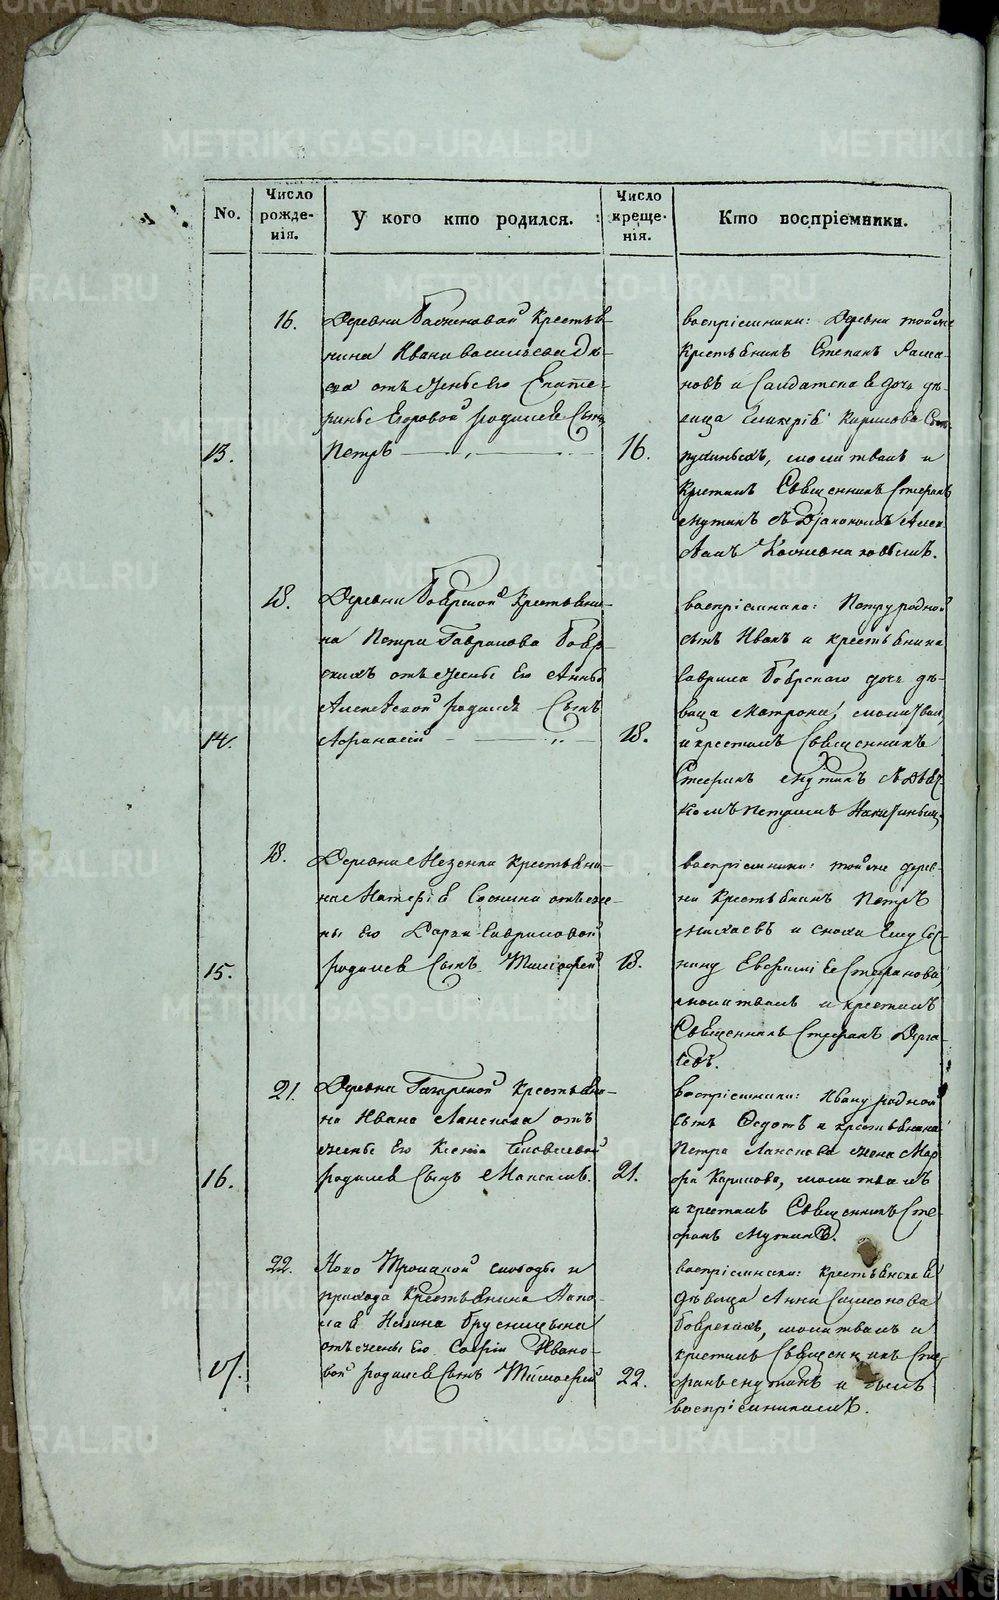 No.
Число рожде-
нія.
У кого кто родился.
Число креще-
нія.
Кто воспріемники.
16.
Деревни крестья-
нина Ивана Васильева
отъ жены его Екате-
рины Егоровой родился сынъ
13.
Петръ
16.
воспріемники: Деревни тойже
крестьянинъ Степанъ
новъ и Салдатская дочь дѣ-
вица Кирилова
молитвалъ и
крестилъ Священникъ Стефанъ
Мутинъ съ Діакономъ
18.
Деревни Боярской крестьяни-
на Петра Гаврилова Бояр-
скихъ отъ жены его Анны
Алексѣевой родился сынъ
14.
Афанасій
18.
воспріемники: Петру родной
сынъ Иванъ и крестьянина
Гаврила Боярскаго дочь дѣ-
вица Матрона, молитвалъ
и крестилъ Священникъ
Стефанъ Мутинъ съ Дьяч-
комъ Петромъ
18.
Деревни Мезенки крестьяни-
на Соснина отъ же-
ны его Дарьи Гавриловой
15.
родился сынъ Тимофей
18.
воспріемники: тойже дерев-
ни крестьянинъ Петръ
и сноха ему Сос-
нину Стефанова,
молитвалъ и крестилъ
Священникъ Стефанъ Дерга-
чевъ.
21.
Деревни крестьяни-
на Ивана Ланскова отъ
жены его Ксеніи
16.
родился сынъ Максимъ.
21.
воспріемники: Ивану родной
сынъ Федотъ и крестьянина
Петра Ланскова жена Мар-
фа Карпова, молитвалъ
и крестилъ Священникъ Сте-
фанъ Мутинъ.
22.
Ново Троицкой слободы и
прихода крестьянина
Ильина Брусницына
отъ жены его Софіи Ивано-
17.
вой родился сынъ Тимофей
22.
воспріемники: крестьянская
дѣвица Анна Симонова
Боярскихъ, молитвалъ и
крестилъ Священникъ Сте-
фанъ Мутинъ и былъ
воспріемникомъ.
METRIKI.GASO-URAL.RU